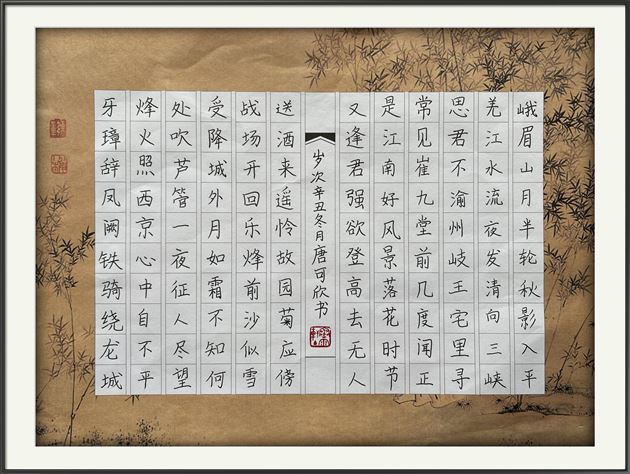 峨眉山月半轮秋影入平
羌江水流夜发清向三峡
思君不渝州岐王宅里寻
常见崔九堂前几度闻正
是江南好风景落花时节
又逢君强欲登高去无人
岁次辛丑冬月唐可欣书
送酒来遥怜故园菊应傍
战场开回乐烽前沙似雪
受降城外月如霜不知何
处吹芦管一夜征人尽望
烽火照西京心中自不平
牙璋辞凤阙铁骑绕龙城